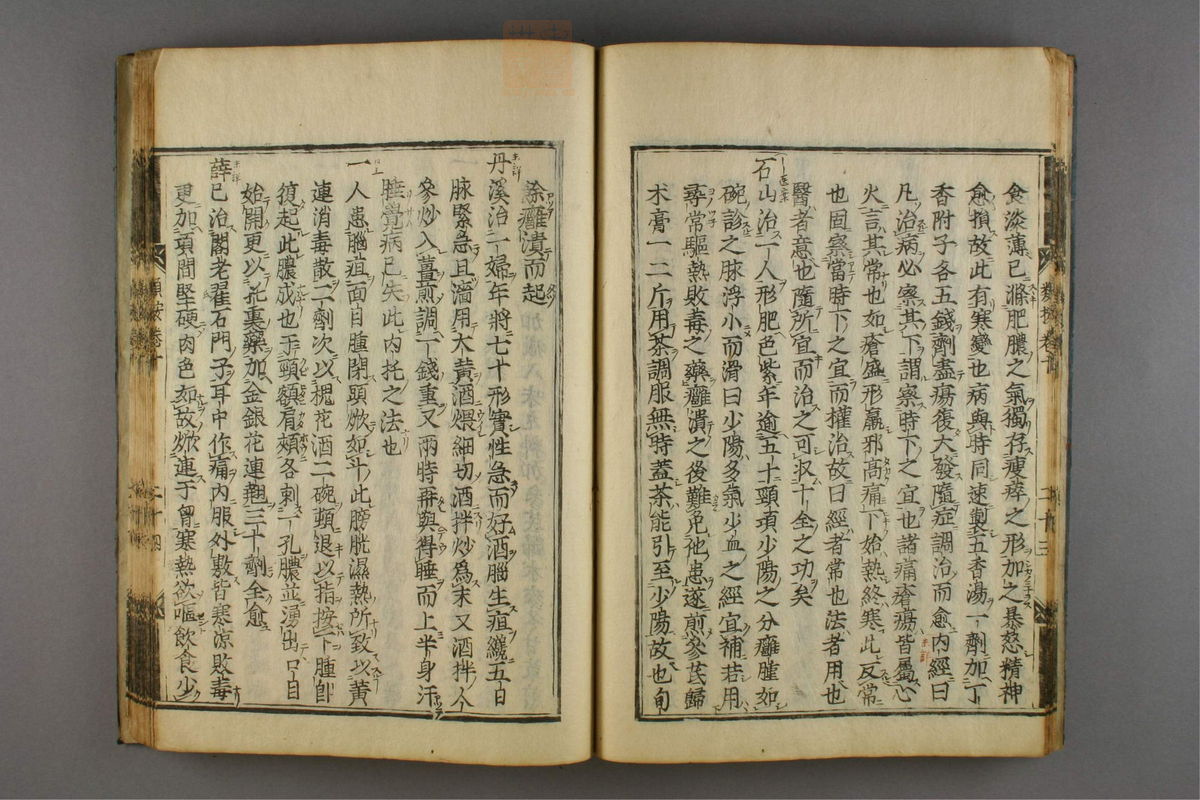 食淡薄已滌肥膿之氣獨存瘦瘁之形加之暴怒精神
愈損故此有寒變也病與時同速製五香湯一劑加丁
香附子各五錢劑盡瘍復大發隨症調治而愈內經曰
凡治病必察其下謂察時下之宜也諸痛瘡瘍皆屬心
火言其常也如瘡盛形羸邪高痛下始熱終寒此反常
也固察當時下之宜而權治故曰經者常也法者用也
醫者意也隨所宜而治之可収十全之功矣
石山治一人形肥色紫年逾五十頸項少陽之分癰腫如
碗診之脉浮小而滑曰少陽多氣少血之經宜補若用
尋常驅熱敗毒之藥癰潰之後難免他患遂煎參芪歸
术膏一二斤用茶調服無時蓋茶能引至少陽故也旬
類按卷十
二十三
餘癰潰而起
丹溪治一婦年將七十形實性急而好酒腦生疽纔五日
脉緊急且濇用大黃酒煨細切酒拌炒爲末又酒拌人
參炒入薑煎調一丁錢重又兩時再與得睡而上半身汗
睡覺病已失此內托之法也
一人患腦疽面目腫閉頭焮如斗此膀胱濕熱所致以黃
連消毒散二劑次以槐花酒二碗頓退以指按下腫即
復起此膿成也于頸額眉頰各刺一孔膿並湧出口目
始開更以托裏藥加金銀花連翹三十劑全愈
薛已治閣老翟石門子耳中作痛內服外敷皆寒涼敗毒
更加項間堅硬肉色如故焮連于胷寒熱欲嘔飲食少
類按卷十
二十四